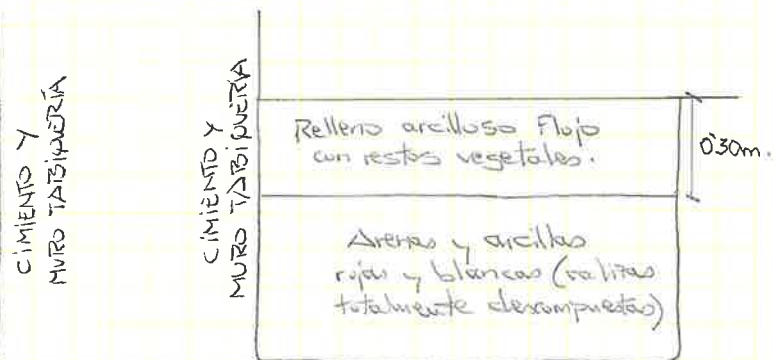 CIMIENTO Y
MURO TABIQUERÍA
CIMIENTO Y
MURO TABIQUERÍA
Relleno arcilloso Flojo
con restos vegetales.
0'30m.
Arenas y arcillas
rojas y blancas (calizas
totalmente descompuestas)